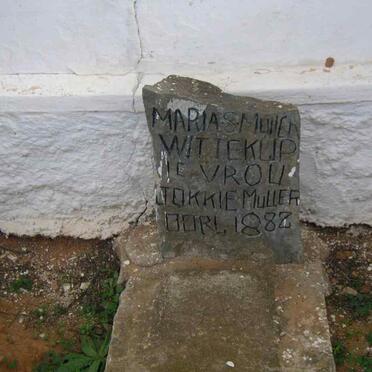 MARIA S MULLER
WITTEKLIP
1E VROU
JOKKIE MULLER
OORL. 1882